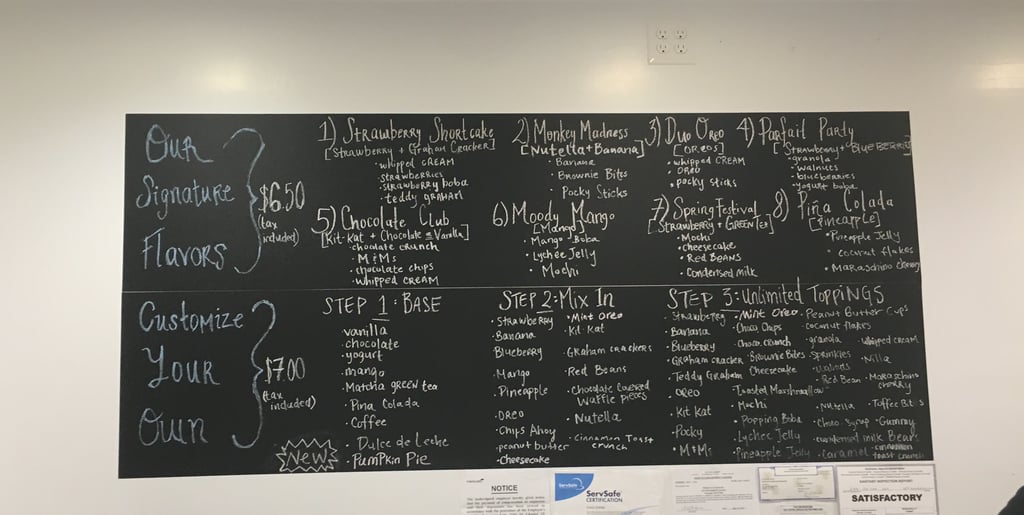 Our
Signature
Flavors
$6.50
(tax
included)
1) Strawberry Shortcake
[Strawberry + Graham Cracker]
• whipped CREAM
• strawberries
• strawberry boba
• teddy GRAHAM
2) Monkey Madness
[Nutella + Banana]
• Banana
• Brownie Bites
• Pocky Sticks
3) Duo Oreo
[OREOS]
• whipped CREAM
• OREO
• pocky sticks
4) Parfait Party
[Strawberry + BLUEBERRIES]
• granola
• walnuts
• blueberries
• yogurt boba
5) Chocolate Club
[Kit-Kat + Chocolate Vanilla]
• chocolate crunch
• M&Ms
• chocolate chips
• whipped CREAM
6) Moody Mango
[Mango]
• Mango Boba
• Lychee Jelly
• Mochi
7) Spring Festival
[Strawberry + GREEN TEA]
• Mochi
• cheesecake
• RED BEANS
• Condensed milk
8) Piña Colada
[Pineapple]
• Pineapple Jelly
• coconut flakes
• MaRaschino cherry
Customize
Your
Own
$7.00
(tax
included)
STEP 1: BASE
vanilla
• chocolate
• yogurt
• mango
• Matcha GREEN tea
• Pina Colada
• Coffee
New
• Dulce de Leche
• Pumpkin Pie
STEP 2: Mix In
• Strawberry
• Banana
Blueberry
• Mango
• Pineapple
• OREO
• Chips Ahoy
• peanut butter
• Cheesecake
• Mint OREO
• Kit-Kat
• Graham crackers
• Red Beans
• Chocolate Covered
Waffle pieces
• Nutella
• Cinnamon Toast
crunch
STEP 3: Unlimited Toppings
• Strawberry
• Banana
• Blueberry
• Graham cracker
• Teddy Graham
• OREO
• Kit Kat
• Pocky
• M&Ms
• Mint Oreo
• Choco Chips
• Choco. crunch
• Brownie Bites
• Cheesecake
• Toasted Marshmallow
• Mochi
• Popping Boba
• Lychee Jelly
• Pineapple Jelly
• Peanut Butter Cups
• coconut flakes
• granola
• Sprinkles
• Walnuts
• Red Bean
• Nutella
• Choco. Syrup
• condensed milk
• Caramel
• whipped cream
• Nilla
• Maraschino
cherry
• Toffee Bits
• Gummy
Bears
• cinnamon
toast crunch
NOTICE
ServSafe
ServSafe
CERTIFICATION
SANITARY INSPECTION REPORT
SATISFACTORY